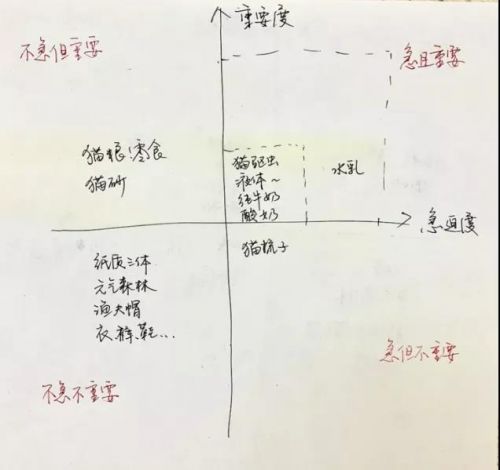 重要度
不急但重要
急且重要
猫粮.零食
猫砂
猫驱虫
液体~
纯牛奶
酸奶
水乳
急迫度
猫梳子
纸质三体
元气森林
渔夫帽
衣.裤.鞋...
急但不重要
不急不重要